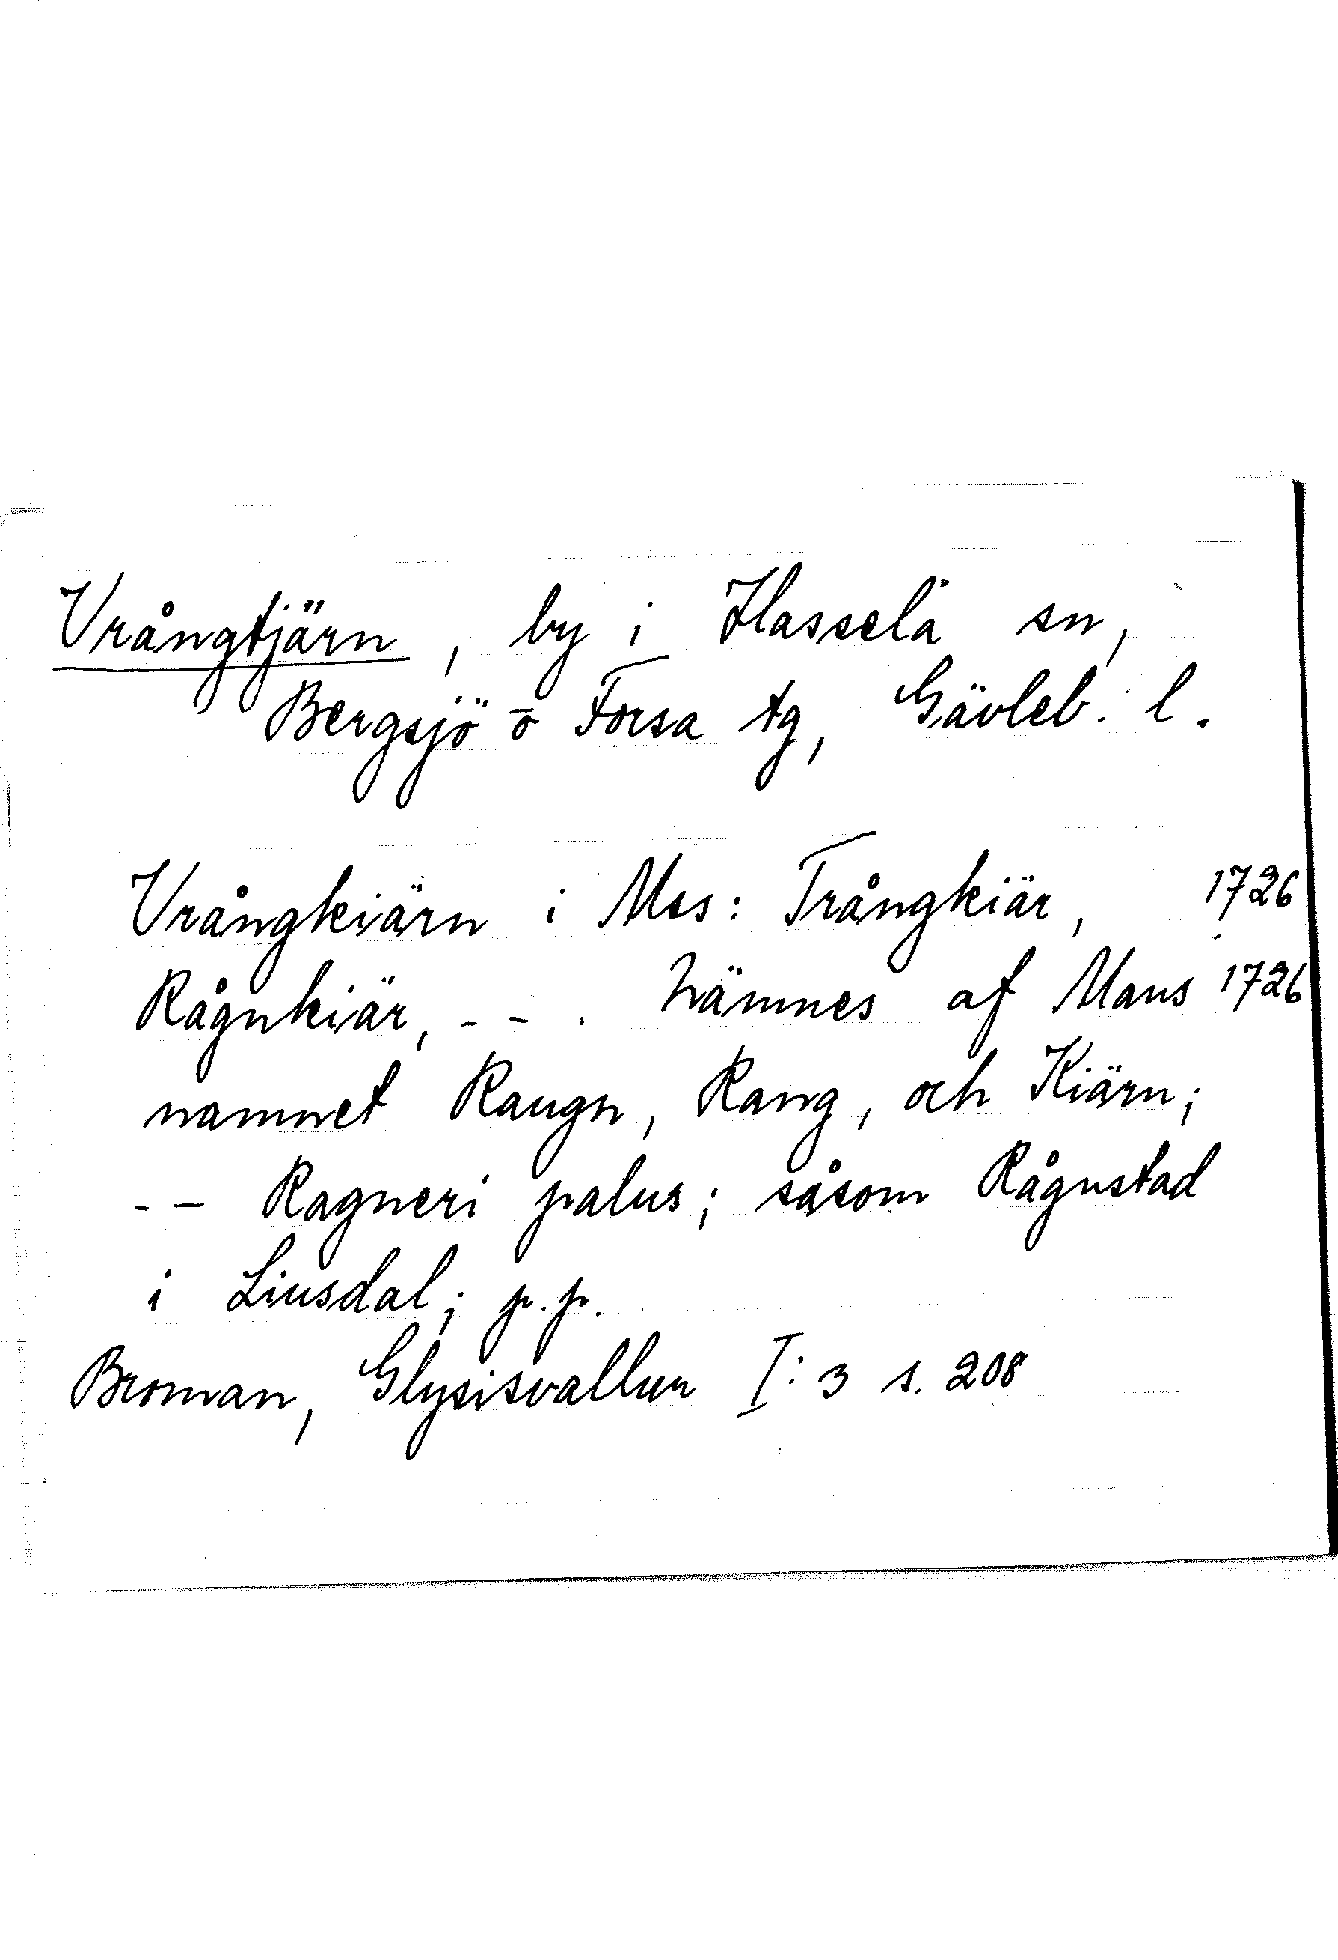 Vrångtjärn, by i Hasselä sn,
Bergsjö o Forsa tg, Gävleb. l.
Vrångkiärn i Mss: Trångkiär, 1726
Rågnkiär, - - . Nämnes af Mans 1726
namnet Raugn, Rang, och Kiärn;
- - Ragneri palus; såsom Rågnstad
i Liusdal; p.p.
Broman, Glysisvallur I: 3 s. 208